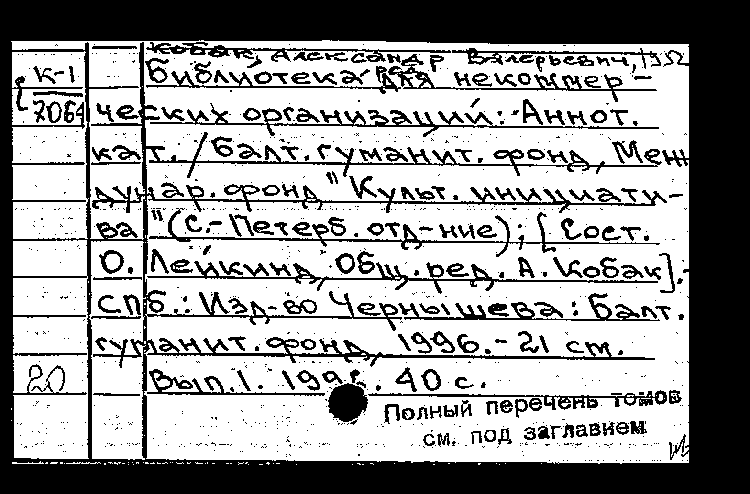 Кобак, Александр Валерьевич, 1952
К-1
7064
Библиотека для некоммер-
ред.
ческих организаций: Аннот.
кат. / Балт. гуманит. фонд, Меж-
дунар. фонд "Культ. инициати-
ва" (С.-Петерб. отд-ние); [Сост.
О. Лейкинд, Общ. ред. А. Кобак].-
СПб.: Изд-во Чернышева: Балт.
гуманит. фонд, 1996.- 21 см.
20
Вып. 1. 1996. 40 с.
Полный перечень томов
см. под заглавием